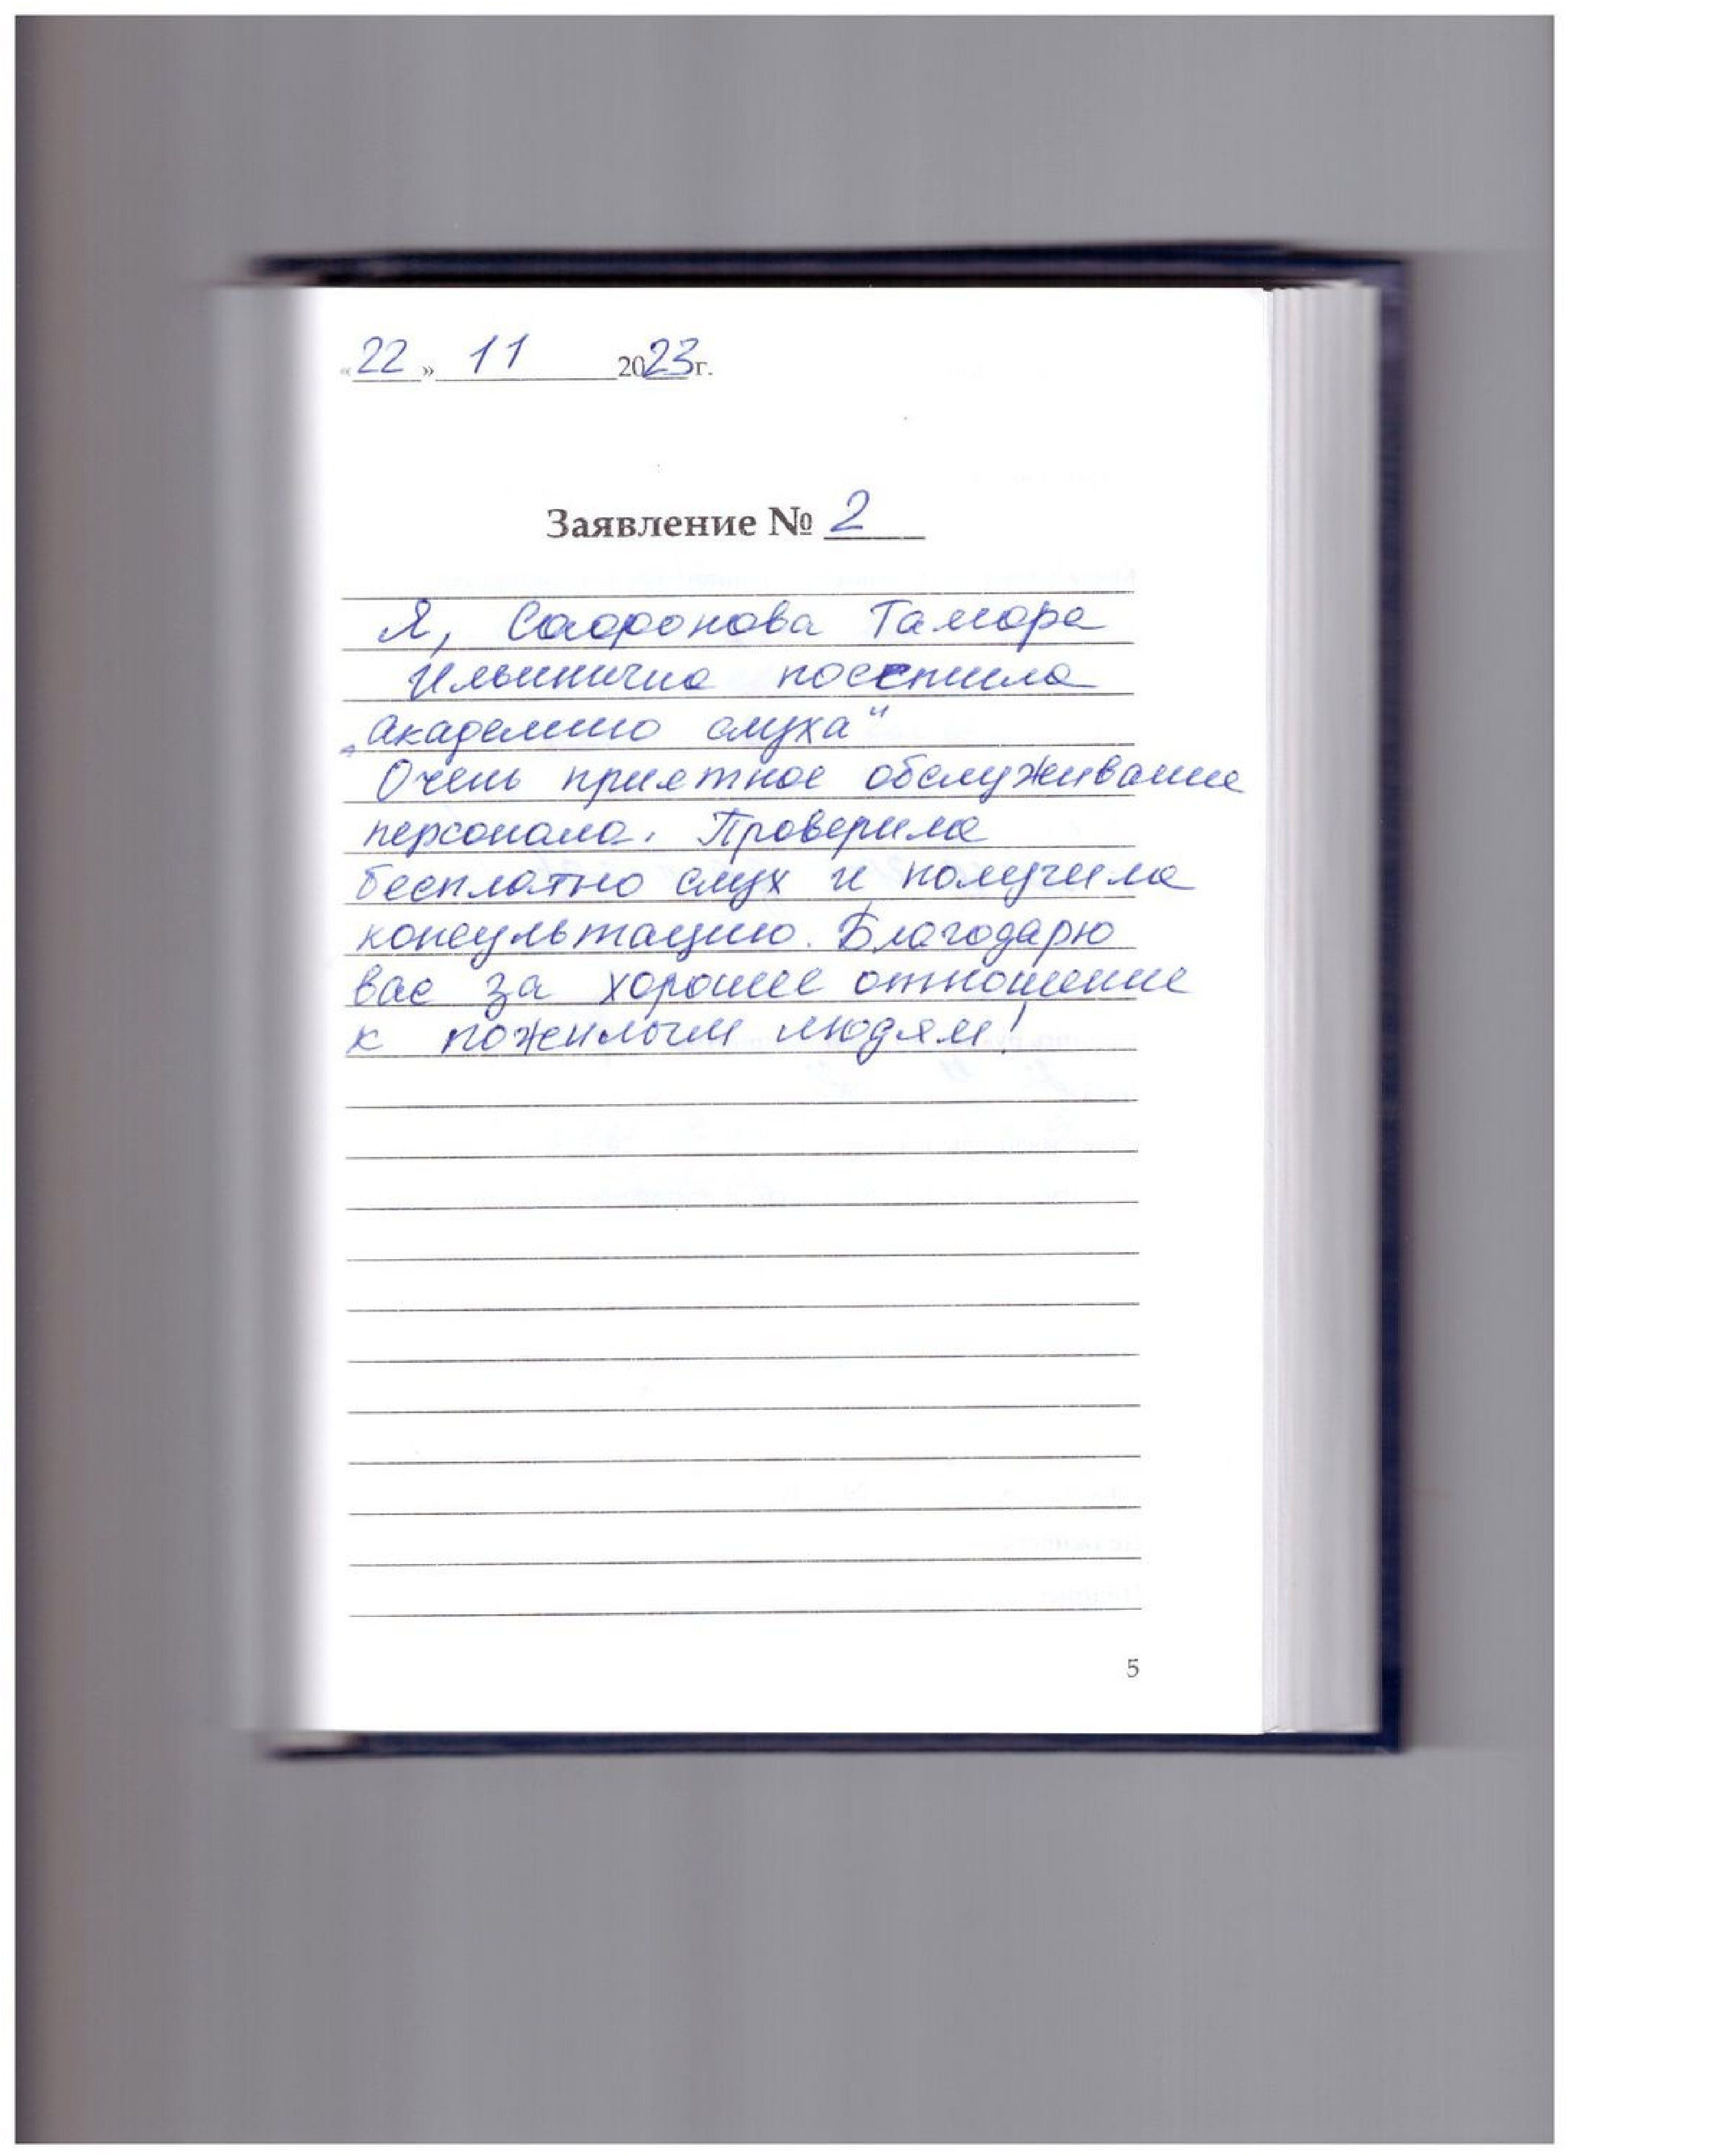 «22» 11 2023г.
Заявление № 2
Я, Сафронова Тамара
Ильинична посетила
„Академию слуха“
Очень приятное обслуживание
персонала. Проверила
бесплатно слух и получила
консультацию. Благодарю
вас за хорошее отношение
к пожилым людям!
5